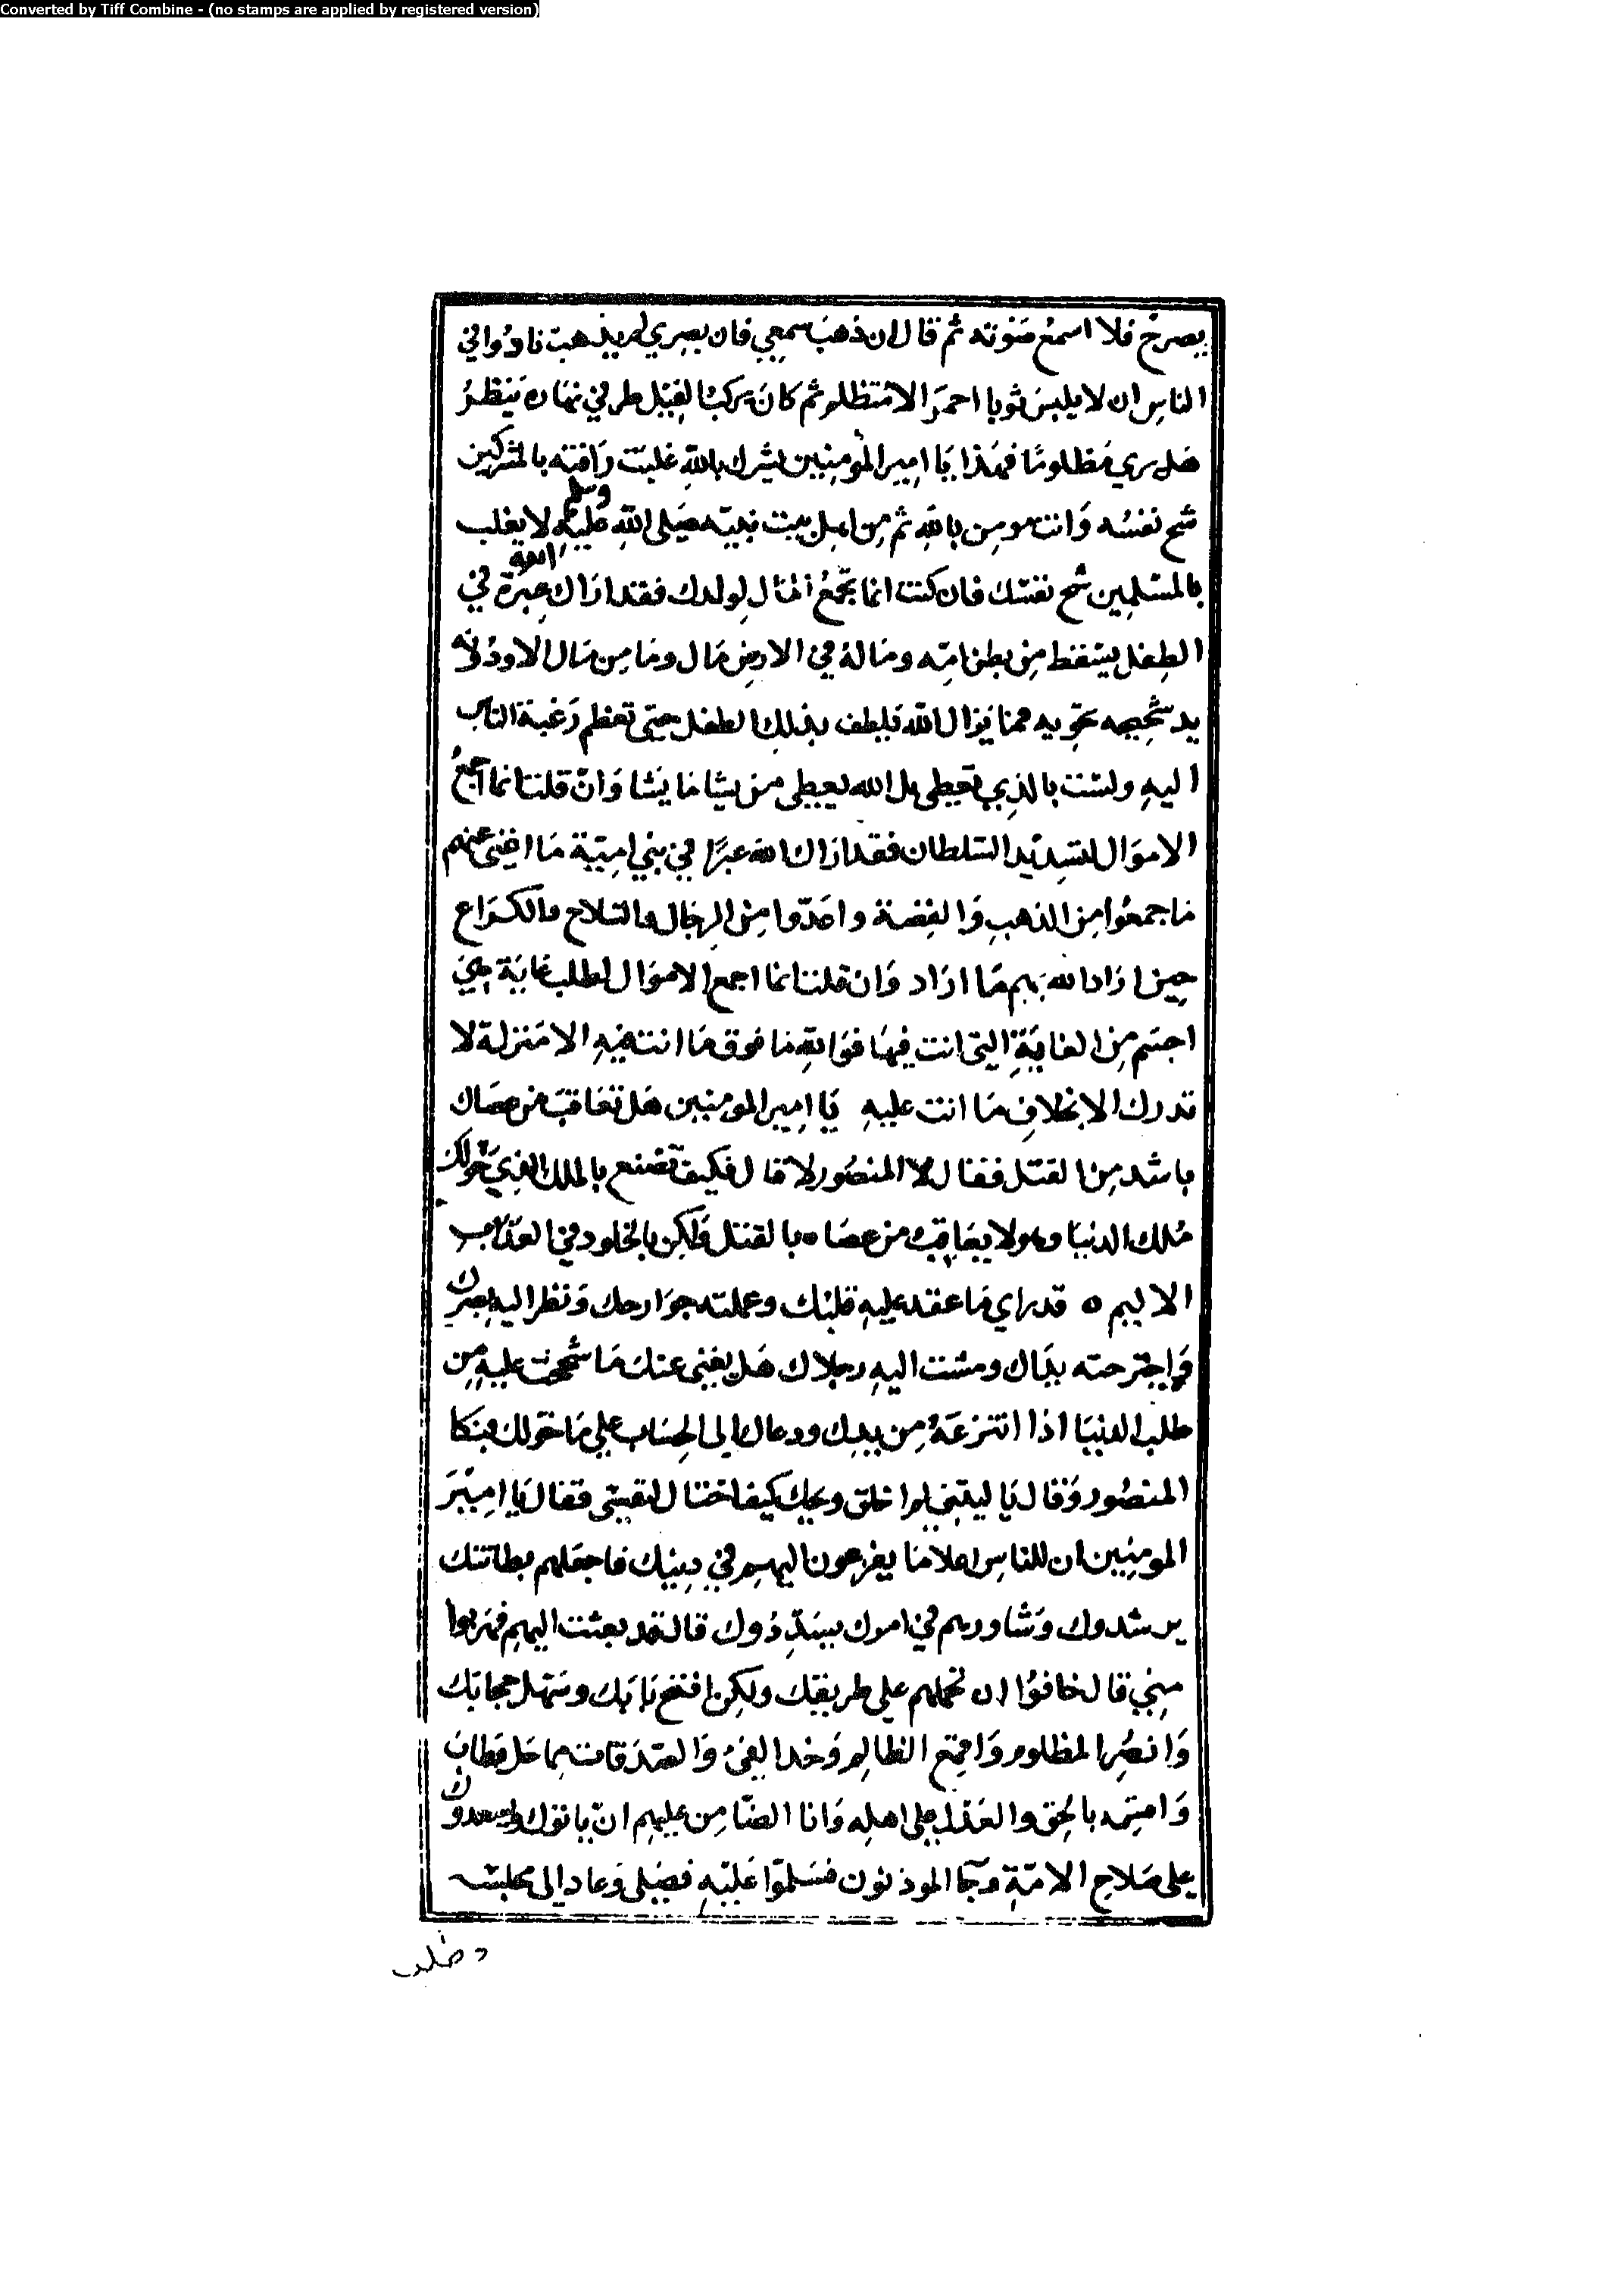 Converted by Tiff Combine - (no stamps are applied by registered version)
يصرخ فلا اسمع صوته ثم قال ان ذهب سمعي فان بصري لم يذهب نادوا في
الناس ان لا يلبس ثوبا احمر الا متظلم ثم كان يركب الفيل طرفي نهاره ينظر
هل يري مظلوما فهذا يا امير المومنين يشرك بالله غلبت رافته بالمشركين
شح نفسه وانت مومن بالله ثم من اهل بيت نبيه صلى الله عليه وسلم لا يغلب
بالمسلمين شح نفسك فان كنت انما تجمع المال لولدك فقد اراك الله عبرة في
الطفل يسقط من بطن امه وما له في الارض مال وما من مال الا ودونه
يد شحيحه تحويه فما يزال الله يلطف بذلك الطفل حتى تعظم رغبة الناس
اليه ولست بالذي تعطى بل الله يعطى من يشا ما يشا وان قلت انما اجمع
الاموال لتشديد السلطان فقد اراك الله عبرا في بني امية ما اغنى عنهم
ما جمعوا من الذهب والفضة واعدوا من الرجال والسلاح والكراع
حين اراد الله بهم ما اراد وان قلت انما اجمع الاموال لطلب غاية هي
اجسم من الغاية التي انت فيها فوالله ما فوق ما انت فيه الا منزلة لا
تدرك الا بخلاف ما انت عليه يا امير المومنين هل تعاقب من عصاك
باشد من القتل فقال المنصور لا قال فكيف تصنع بالملك الذي خولك
ملك الدنيا وهو لا يعاقب من عصاه بالقتل ولكن بالخلود في العذاب
الاليم ه قد راي ما عقد عليه قلبك وعملته جوارحك ونظر اليه بصرك
واجترحته يداك ومشت اليه رجلاك هل يغنى عنك ما شححت عليه من
طلب الدنيا اذا انتزعه من يدك ودعاك الى الحساب على ما خولك فبكا
المنصور وقال يا ليتني لم اخلق ويحك كيف احتال لنفسي فقال يا امير
المومنين ان للناس اعلاما يفزعون اليهم في دينك فاجعلهم بطانتك
يرشدوك وشاورهم في امرك يسددوك قال قد بعثت اليهم فهربوا
مني قال خافوا ان تحملهم على طريقتك ولكن افتح بابك وسهل حجابك
وانصر المظلوم واقمع الظالم وخد الفئ والصدقات مما حل وطاب
واقسمه بالحق والعدل على اهله وانا الضامن عليهم ان ياتوك ويسعدوك
على صلاح الامة وجا الموذنون فسلموا عليه فصلى وعاد الى مجلسه
وطلب